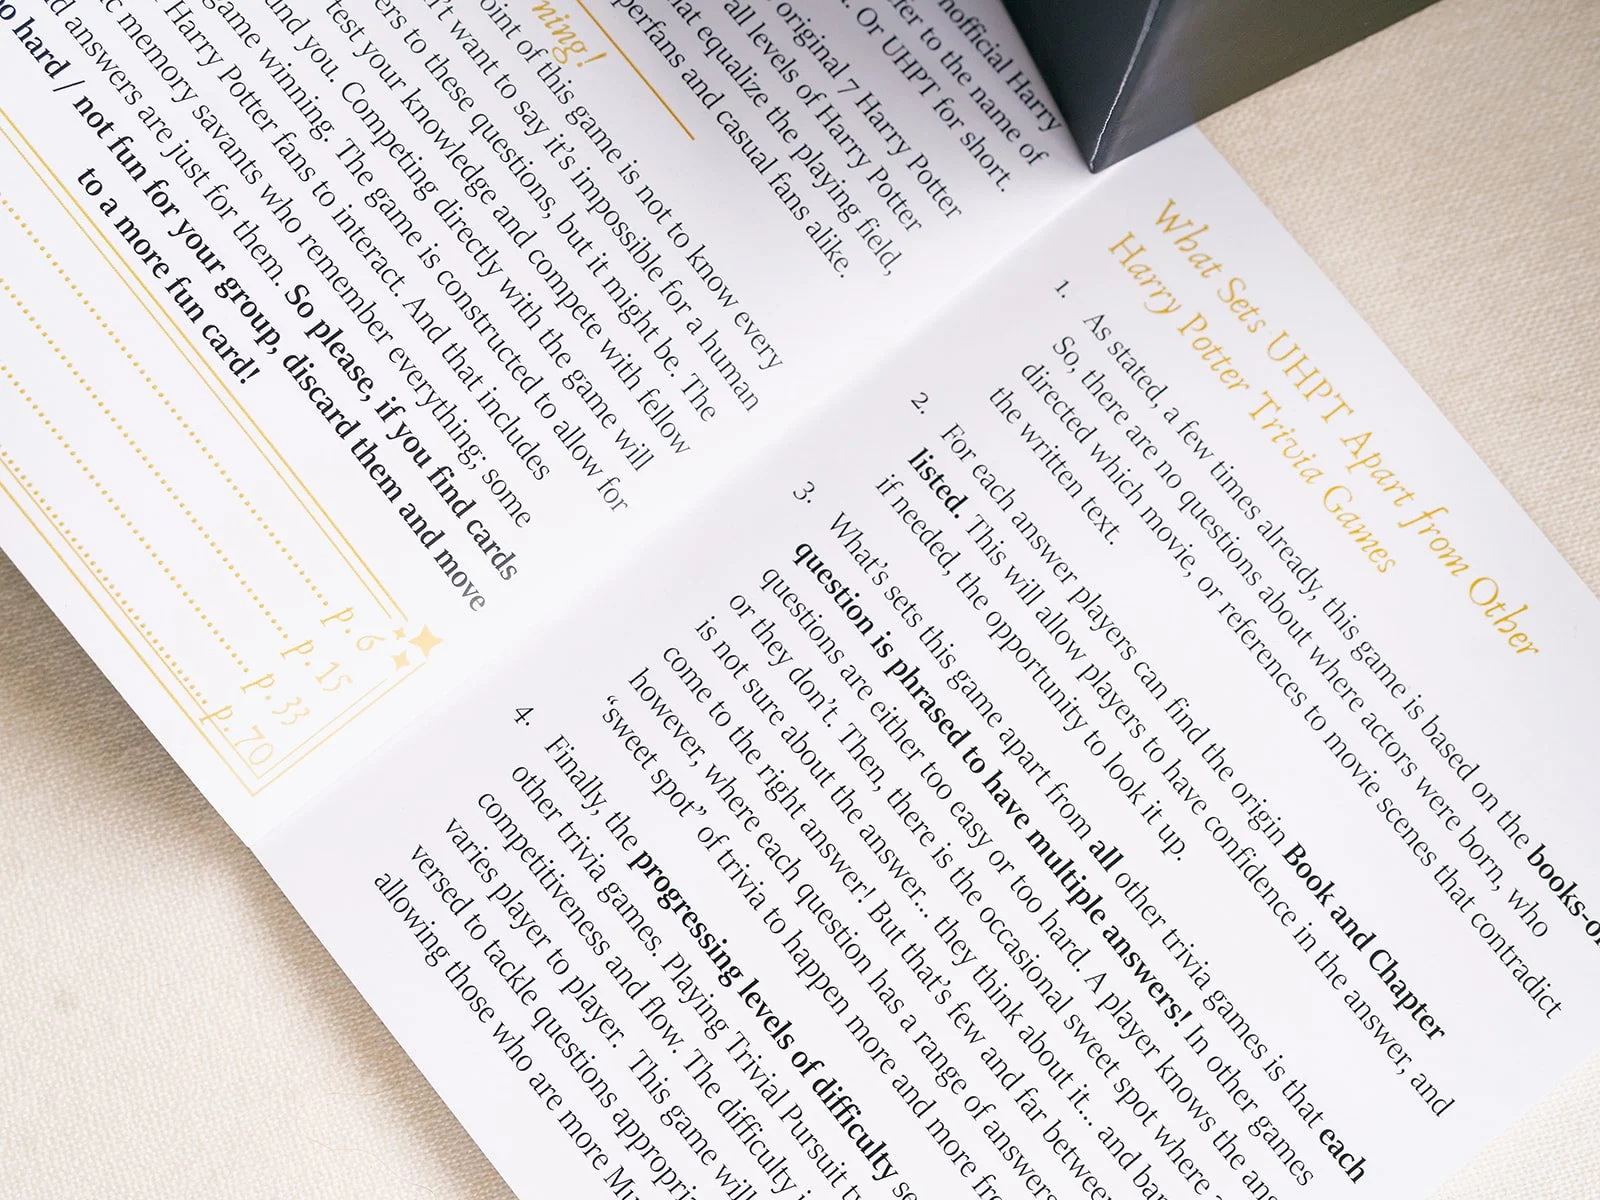 Harry
to the name of
Or UHPT for short.
original 7 Harry Potter
all levels of Harry Potter
equalize the playing field,
and casual fans alike.
of this game is not to know every
want to say it's impossible for a human
to these questions, but it might be. The
test your knowledge and compete with fellow
you. Competing directly with the game will
game winning. The game is constructed to allow for
Harry Potter fans to interact. And that includes
memory savants who remember everything; some
answers are just for them. So please, if you find cards
hard / not fun for your group, discard them and move
to a more fun card!
p. 6
p. 15
p. 33
p. 70
What Sets UHPT Apart from Other
Harry Potter Trivia Games
1. As stated, a few times already, this game is based on the books-o
So, there are no questions about where actors were born, who
directed which movie, or references to movie scenes that contradict
the written text.
2. For each answer players can find the origin Book and Chapter
listed. This will allow players to have confidence in the answer, and
if needed, the opportunity to look it up.
3. What's sets this game apart from all other trivia games is that each
question is phrased to have multiple answers! In other games
questions are either too easy or too hard. A player knows the
or they don't. Then, there is the occasional sweet spot where
is not sure about the answer... they think about it... and
come to the right answer! But that's few and far between
however, where each question has a range of answers
"sweet spot" of trivia to happen more and more
4. Finally, the progressing levels of difficulty
other trivia games. Playing Trivial Pursuit
competitiveness and flow. The difficulty
varies player to player. This game will
versed to tackle questions
allowing those who are more